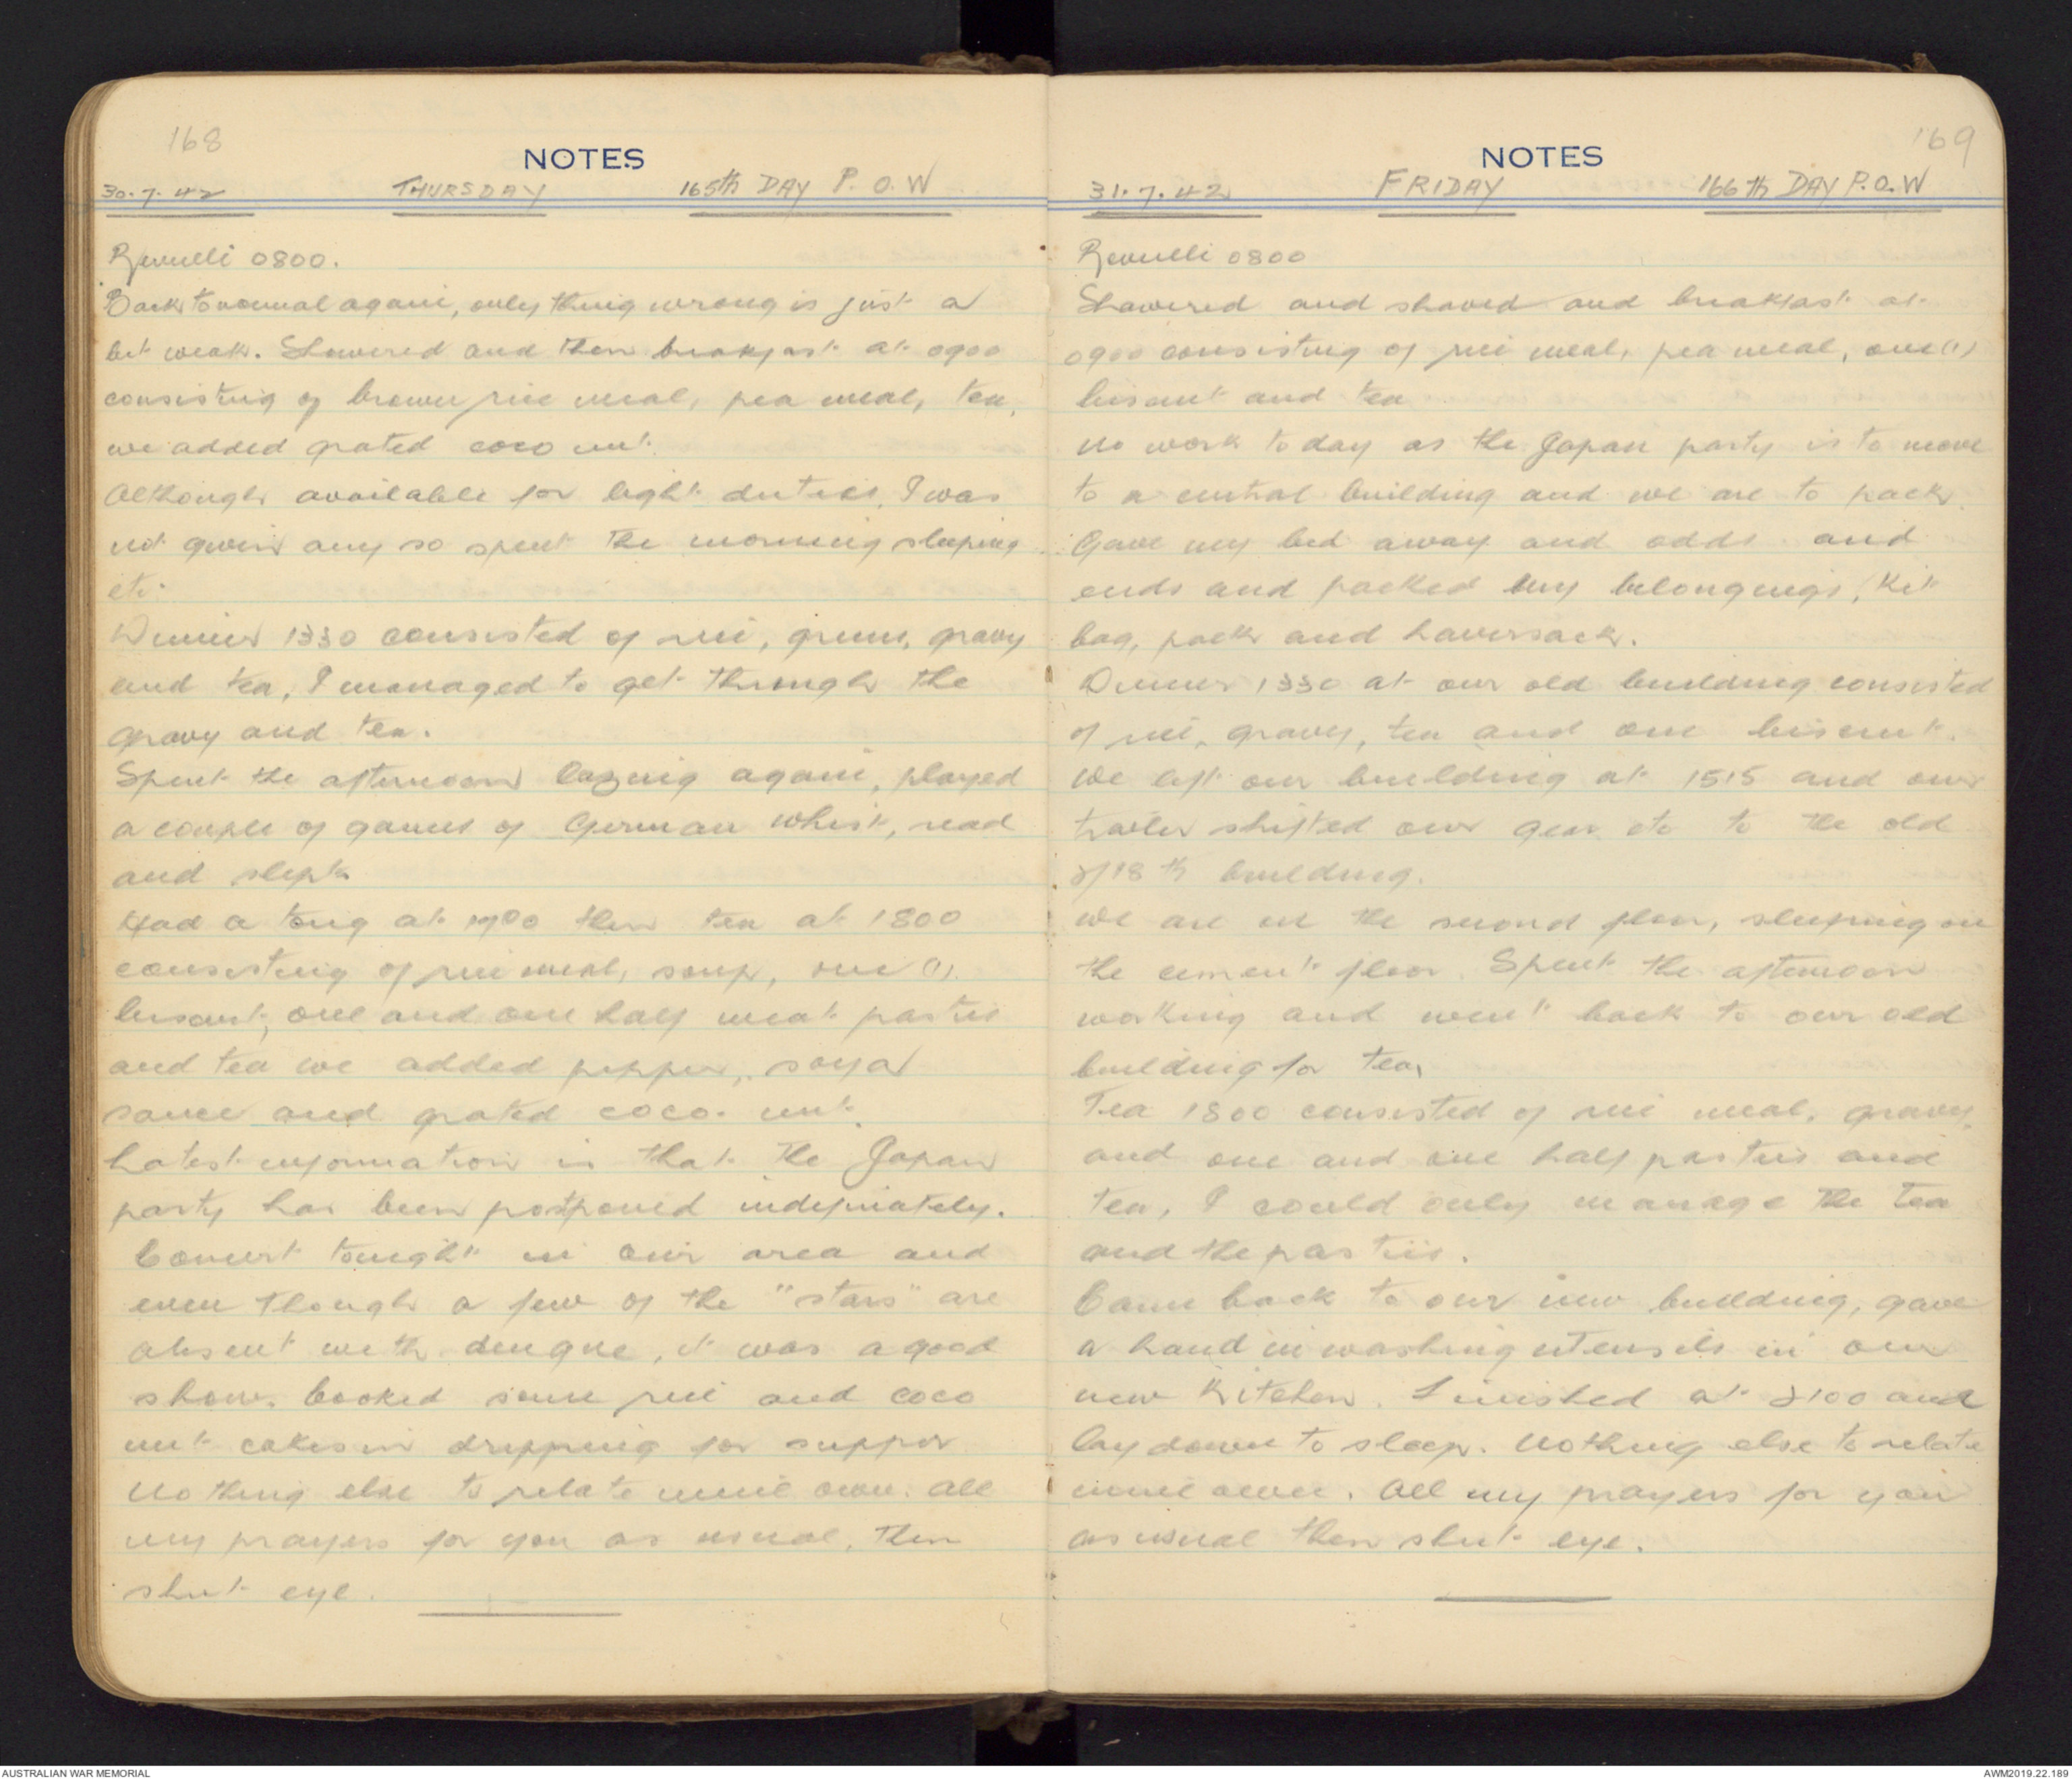 168
NOTES
30.7.42 THURSDAY 165th DAY P.O.W
Reveille 0800.
Back to normal again, only thing wrong is just a
bit weak. Showered and then breakfast at 0900
consisting of brown rice meal, pea meal, tea,
we added grated coco nut.
Although available for light duties, I was
not given any so spent the morning sleeping
etc.
Dinner 1330 consisted of rice, greens, gravy
and tea, I managed to get through the
gravy and tea.
Spent the afternoon lazing again, played
a couple of games of German whist, read
and slept
Had a tong at 1700 then tea at 1800
consisting of rice meal, soup, one (1)
biscuit, one and one half meat pasties
and tea we added pepper, soya
sauce and grated coco-nut.
Latest information is that the Japan
party has been postponed indefinately.
Concert tonight in our area and
even though a few of the "stars" are
absent with dengue, it was a good
show. Cooked some rice and coco
nut cakes in dripping for supper
Nothing else to relate mine own. All
my prayers for you as usual, then
shut eye.
169
NOTES
31.7.42 FRIDAY 166th DAY P.O.W
Reveille 0800
Showered and shaved and breakfast at
0900 consisting of rice meal, pea meal, one (1)
biscuit and tea
No work today as the Japan party is to move
to a central building and we are to pack.
Gave my bed away and odds and
ends and packed my belongings, Kit
bag, pack and haversack.
Dinner 1330 at our old building consisted
of rice, gravy, tea and one biscuit.
We left our building at 1515 and our
trailer shifted our gear etc to the old
2/18th building.
We are on the second floor, sleeping on
the cement floor. Spent the afternoon
working and went back to our old
building for tea,
Tea 1800 consisted of rice meal, gravy,
and one and one half pasties and
tea, I could only manage the tea
and the pasties.
Came back to our new building, gave
a hand in washing utensils in our
new Kitchen. Finished at 2100 and
lay down to sleep. Nothing else to relate
mine own. All my prayers for you
as usual then shut eye.
AUSTRALIAN WAR MEMORIAL
AWM2019.22.189